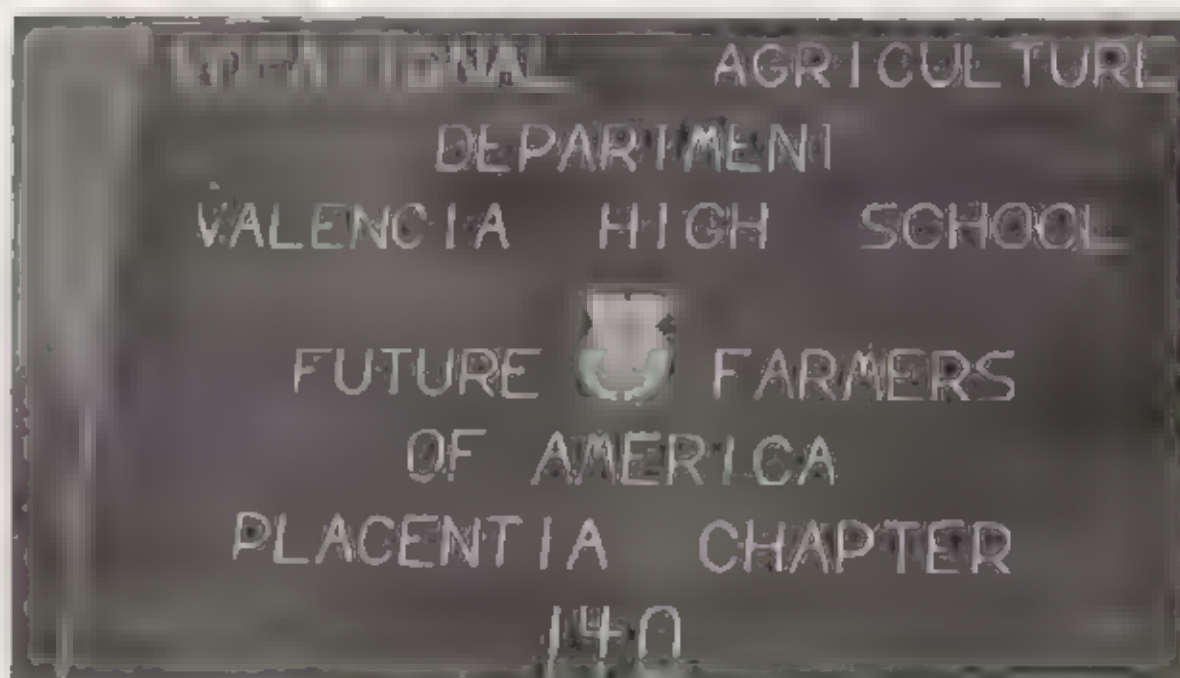 VOCATIONAL AGRICULTURE
DEPARTMENT
VALENCIA HIGH SCHOOL
FUTURE FARMERS
OF AMERICA
PLACENTIA CHAPTER
140